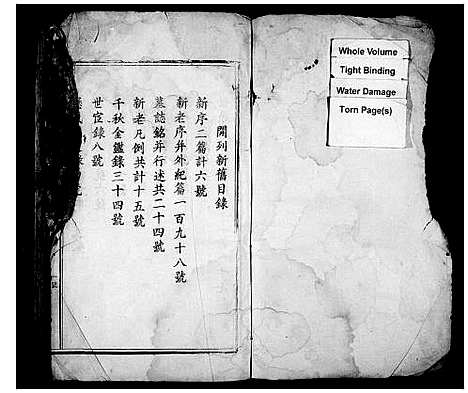 Whole Volume
Tight Binding
Water Damage
Torn Page(s)
開列新舊目錄
新序二篇計六號
新老序并外紀篇一百九十八號
墓誌銘并行述共二十四號
新老凡例共計十五號
千秋金鑑錄三十四號
世宦錄八號